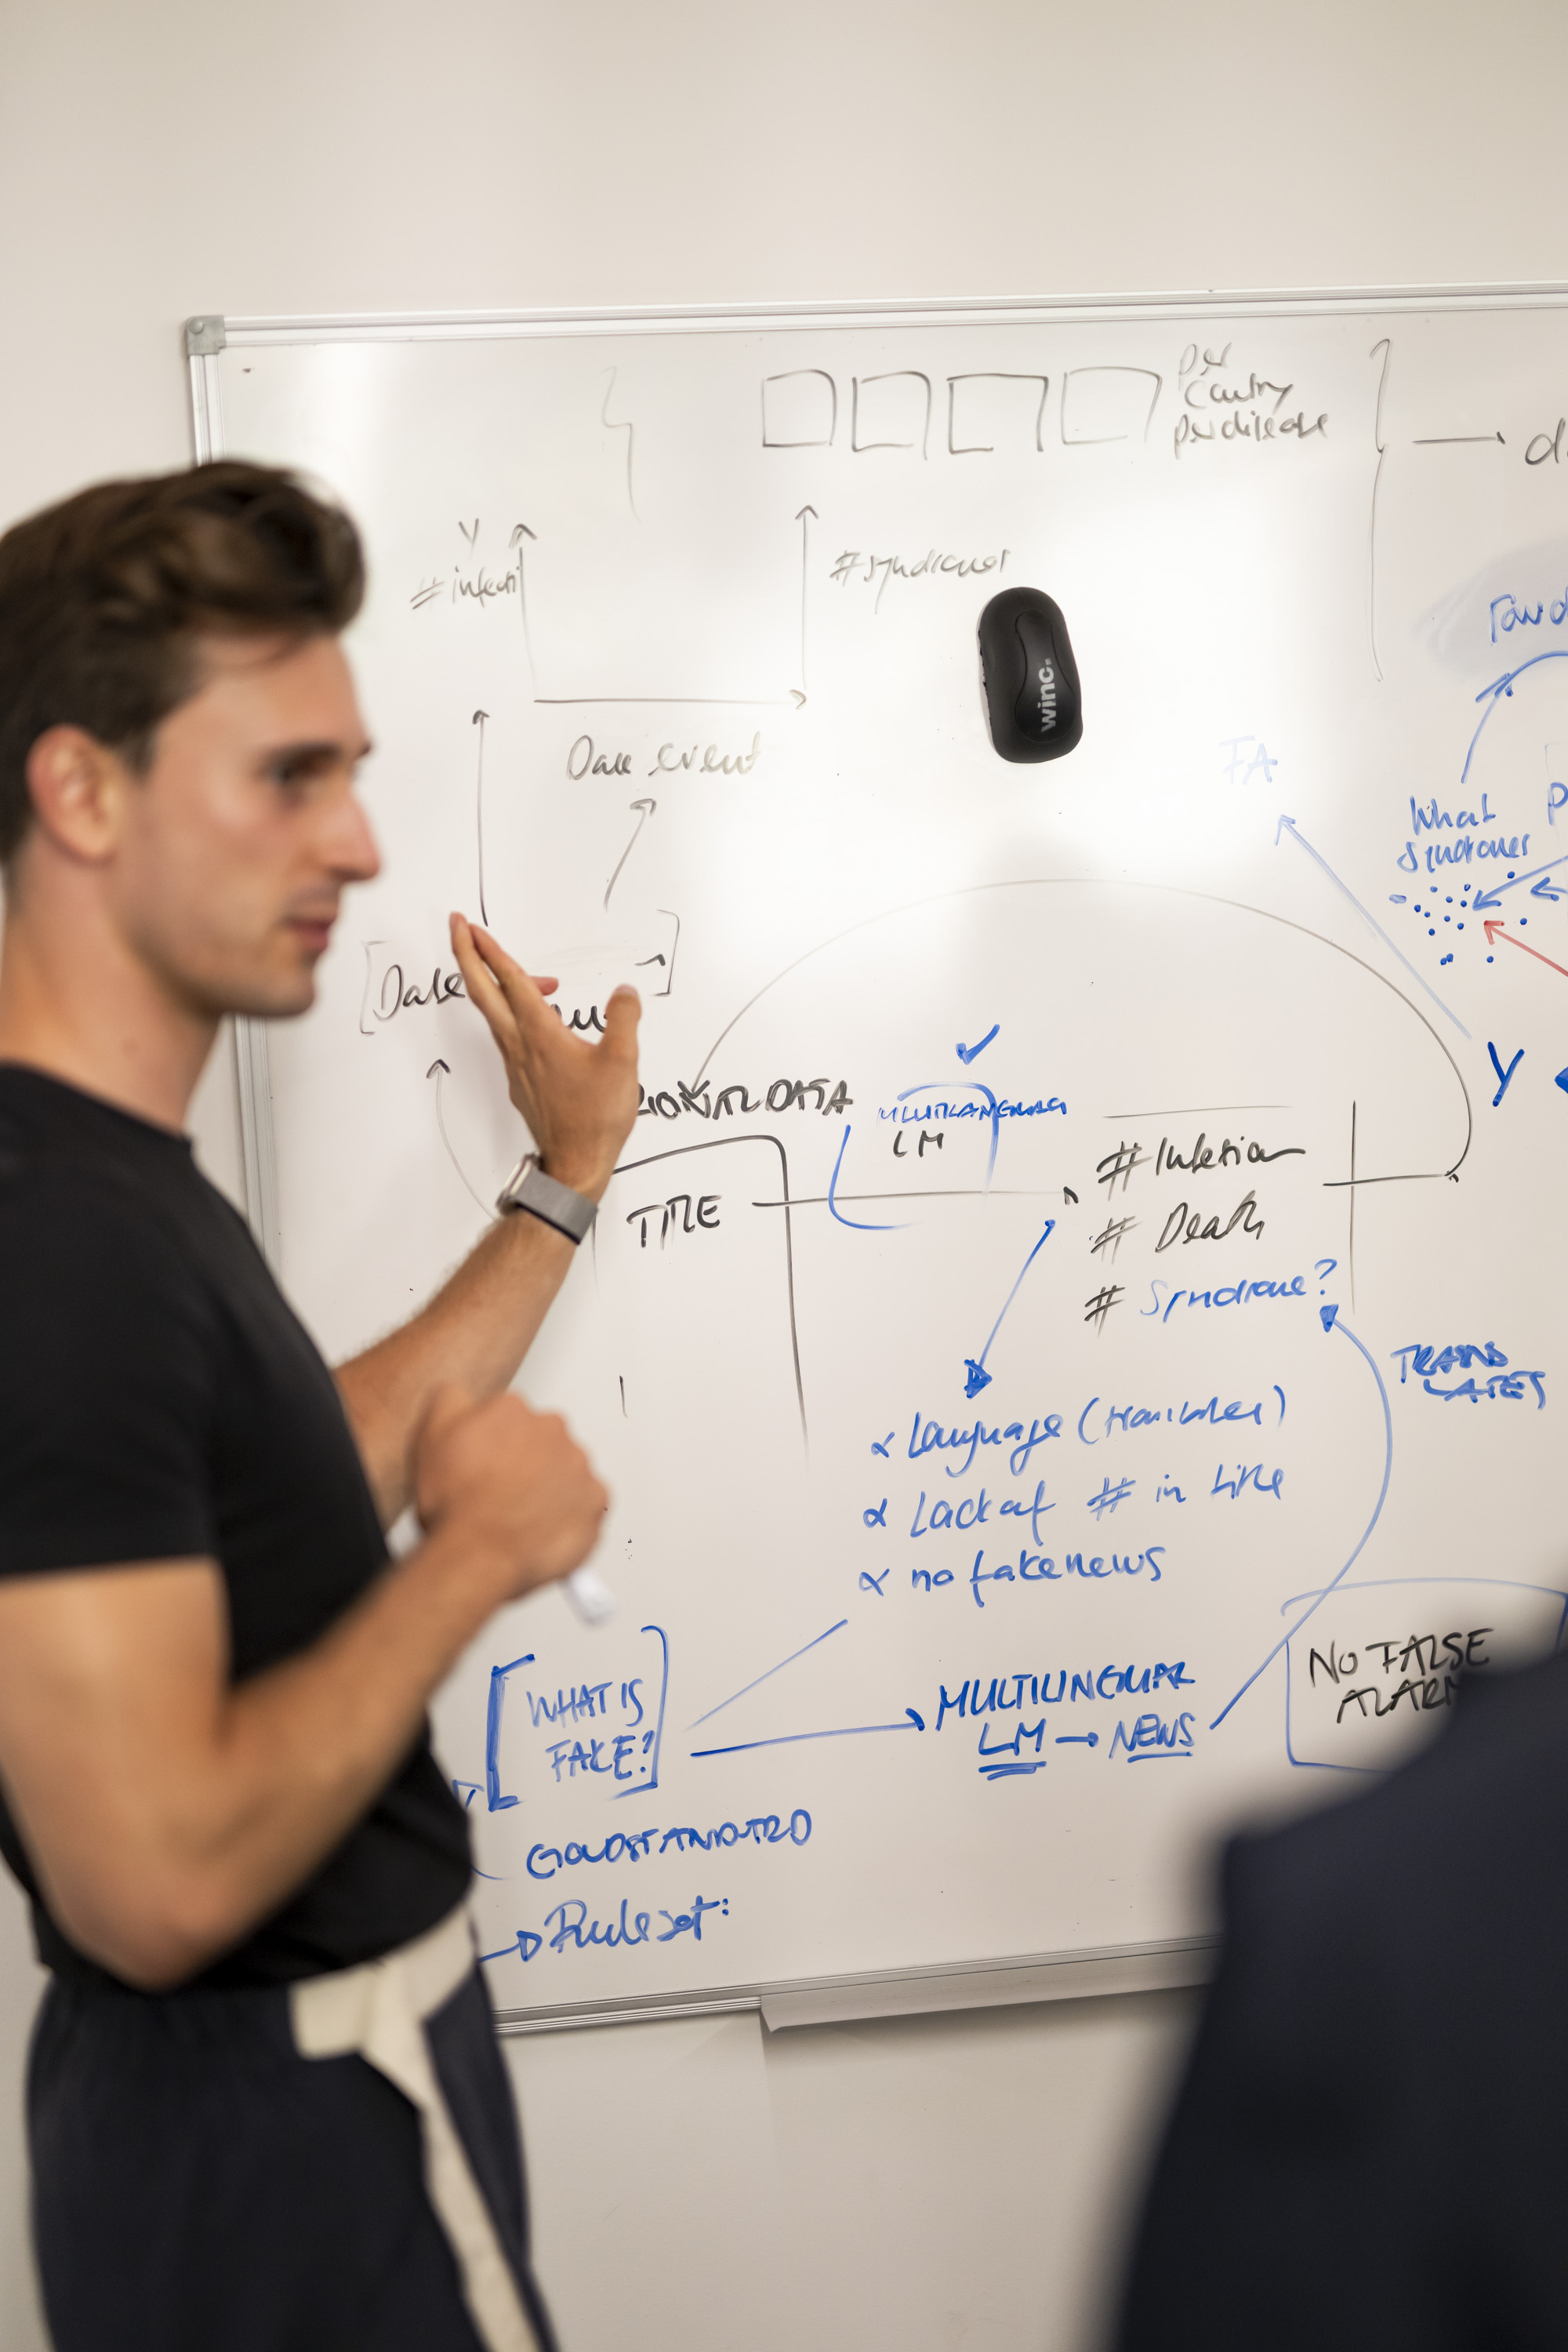 per
Country
per disease
Y
# infecti
# syndromes
winc.
Date event
FA
What
Syndromes
Date
DATA
MULTILANGUAG
LM
Y
TITLE
# Infection
# Death
# Syndrome?
TRANS
LATES
Language (translates)
Lack of # in title
no fake news
WHAT IS
FAKE?
MULTILINGUAL
LM → NEWS
NO FALSE
ALARM
GOLDSTANDARD
Rule set: